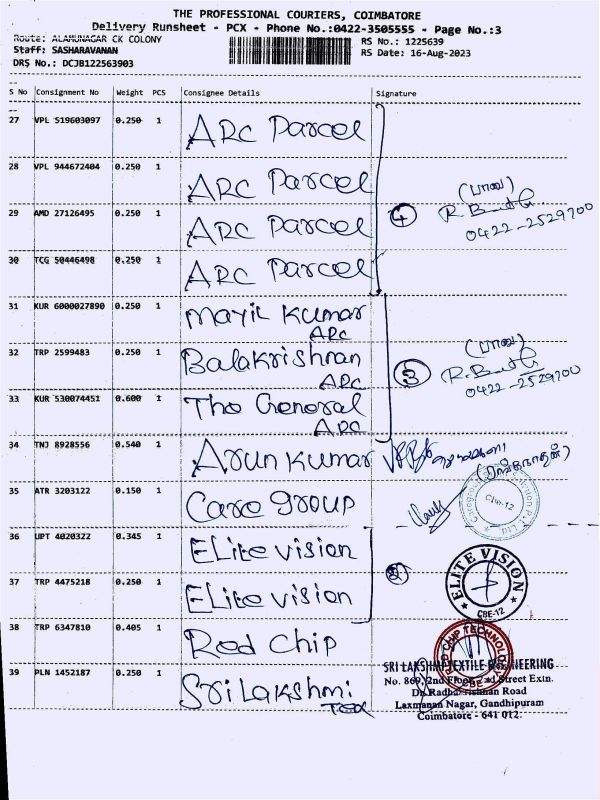 THE PROFESSIONAL COURIERS, COIMBATORE
Delivery Runsheet - PCX - Phone No.:0422-3505555 - Page No.:3
Route: ALAMUNAGAR CK COLONY
RS No.: 1225639
Staff: SASHARAVANAN
RS Date: 16-Aug-2023
DRS No.: DCJB122563903
S No Consignment No Weight PCS Consignee Details Signature
27 VPL 519603097 0.250 1 ARC Parcel
28 VPL 944672404 0.250 1 ARC Parcel
(பாலு)
4
0422-2529700
29 AMD 27126495 0.250 1 ARC Parcel
30 TCG 50446498 0.250 1 ARC Parcel
31 KUR 6000027890 0.250 1 Mayil Kumar
ARC
32 TRP 2599483 0.250 1 Balakrishnan
ARC
(பாலு)
3
0422-2529700
33 KUR 530074451 0.600 1 The General
ARC
34 TNJ 8928556 0.540 1 Arun Kumar
35 ATR 3203122 0.150 1 Care group
Cbe-12
36 UPT 4020322 0.345 1 Elite vision
2
37 TRP 4475218 0.250 1 Elite vision
ELITE VISION
CBE-12
38 TRP 6347810 0.405 1 Red Chip
RED CHIP TECHNOLOGY
CBE
39 PLN 1452187 0.250 1 Sri Lakshmi
Tex
SRI LAKSHMI TEXTILE ENGINEERING
No. 869, 2nd Floor, 2nd Street Extn.
Dr. Radhakrishnan Road
Laxmanan Nagar, Gandhipuram
Coimbatore - 641 012.